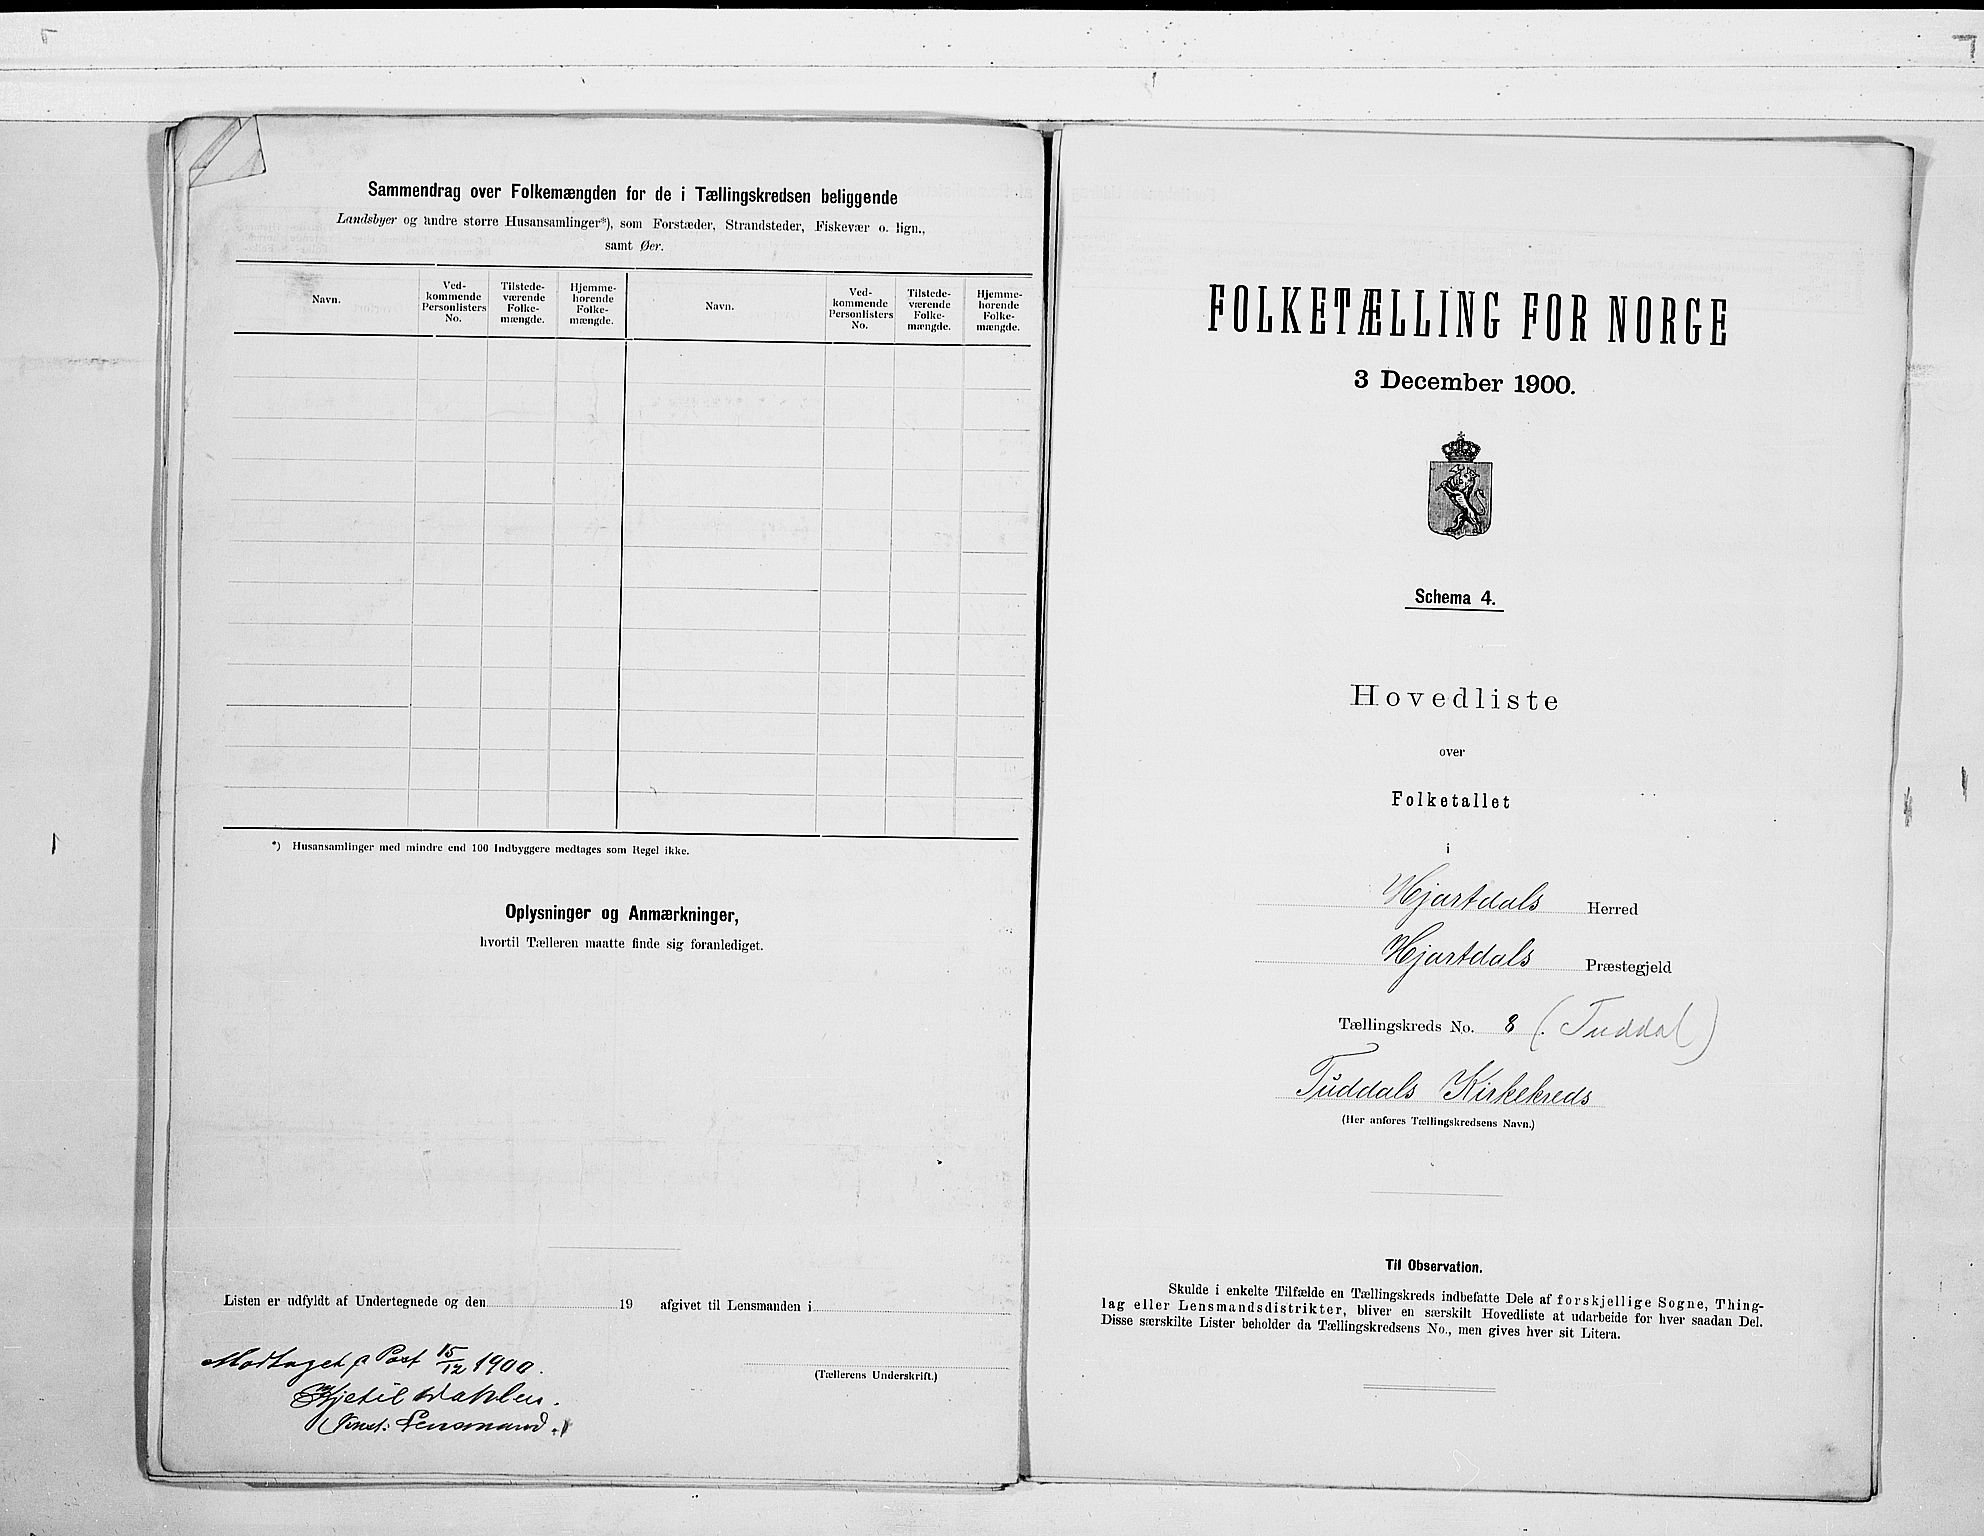 Sammendrag over Folkemængden for de i Tællingskredsen beliggende
Landsbyer og andre større Husansamlinger*), som Forstæder, Strandsteder, Fiskevær o. lign.,
samt Øer.
Navn.
Ved-
kommende
Personlisters
No.
Tilstede-
værende
Folke-
mængde.
Hjemme-
hørende
Folke-
mængde.
Navn.
Ved-
kommende
Personlisters
No.
Tilstede-
værende
Folke-
mængde.
Hjemme-
hørende
Folke-
mængde.
*) Husansamlinger med mindre end 100 Indbyggere medtages som Regel ikke.
Oplysninger og Anmærkninger,
hvortil Tælleren maatte finde sig foranlediget.
Listen er udfyldt af Undertegnede og den 19 afgivet til Lensmanden i
(Tællerens Underskrift.)
Modtaget p Post 15/12 1900.
Kjetil Dahlen.
Konst: Lensmand.
FOLKETÆLLING FOR NORGE
3 December 1900.
Schema 4.
Hovedliste
over
Folketallet
i
Hjartdals Herred
Hjartdals Præstegjeld
Tællingskreds No. 8 (Tuddal)
Tuddals Kirkekreds
(Her anføres Tællingskredsens Navn.)
Til Observation.
Skulde i enkelte Tilfælde en Tællingskreds indbefatte Dele af forskjellige Sogne, Thing-
lag eller Lensmandsdistrikter, bliver en særskilt Hovedliste at udarbeide for hver saadan Del.
Disse særskilte Lister beholder da Tællingskredsens No., men gives hver sit Litera.